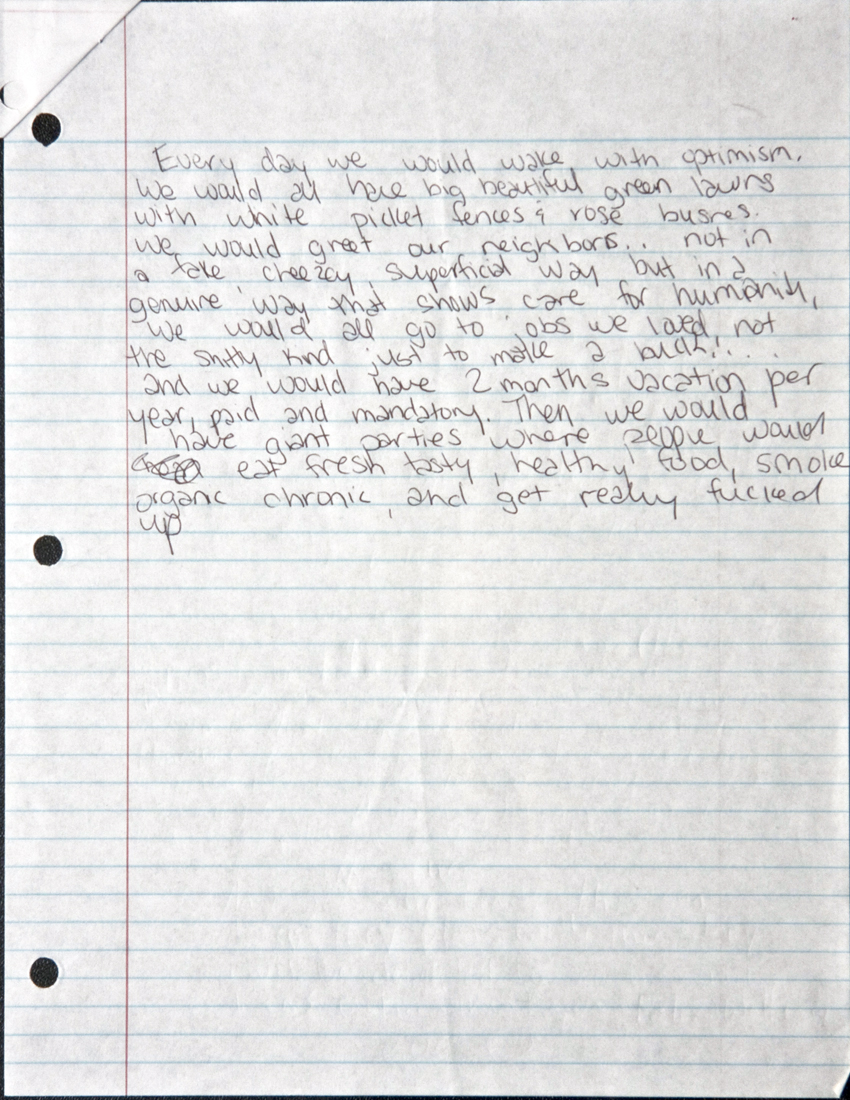 Every day we would wake with optimism.
We would all have big beautiful green lawns
with white picket fences & rose bushes.
We would greet our neighbors.. not in
a fake cheezey, superficial way but in a
genuine way that shows care for humanity,
We would all go to jobs we loved, not
the shitty kind just to make a buck!...
and we would have 2 months vacation per
year, paid and mandatory. Then we would
have giant parties where people would
eat fresh tasty, healthy food, smoke
organic chronic, and get really fucked
up